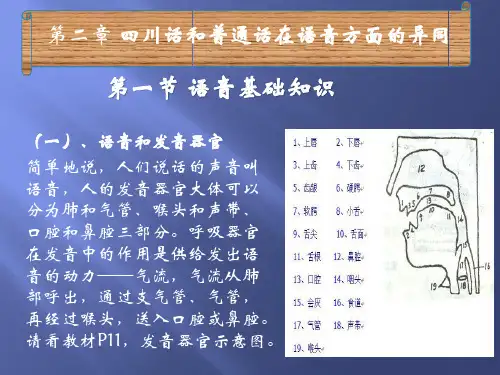 第二章 四川话和普通话在语音方面的异同
第一节 语音基础知识
（一）、语音和发音器官
简单地说，人们说话的声音叫
语音，人的发音器官大体可以
分为肺和气管、喉头和声带、
口腔和鼻腔三部分。呼吸器官
在发音中的作用是供给发出语
音的动力——气流，气流从肺
部呼出，通过支气管、气管，
再经过喉头，送入口腔或鼻腔。
请看教材P11，发音器官示意图。
1、上唇 2、下唇
3、上齿 4、下齿
5、齿龈 6、硬腭
7、软腭 8、小舌
9、舌尖 10、舌面
11、舌根 12、鼻腔
13、口腔 14、咽头
15、会厌 16、食道
17、气管 18、声带
19、喉头